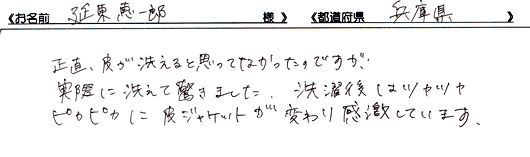 《お名前 延東惠一郎 様》 《都道府県 兵庫県 》
正直、皮が洗えると思ってなかったのですが
実際に洗えて驚きました。洗濯後はツヤツヤ
ピカピカに皮ジャケットが変わり感激しています。